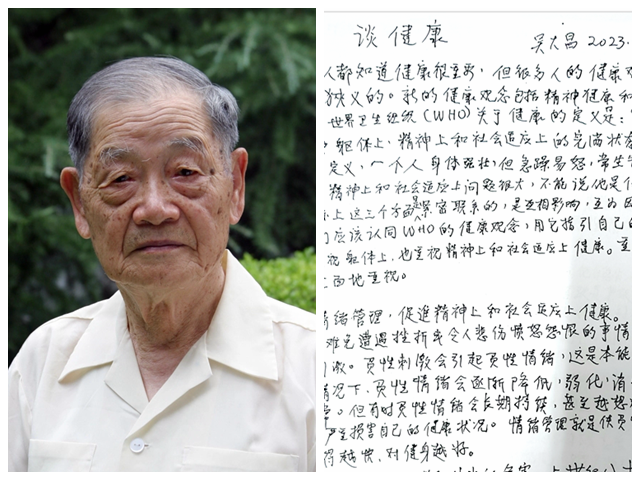 谈健康
吴大昌 2023.
人都知道健康很重要，但很多人的健康观
狭义的。新的健康观念包括精神健康和
世界卫生组织(WHO)关于健康的定义是：
躯体上，精神上和社会适应上的完满状态
定义，一个人身体强壮，但急躁易怒，常生
精神上和社会适应上问题很大，不能说他是
上这三个方面是紧密联系的，是互相影响，互为因
应该认同WHO的健康观念，用它指引自己的
视躯体上，也重视精神上和社会适应上健康。
面地重视。
情绪管理，促进精神上和社会适应上健康。
难免遭遇挫折或令人悲伤愤怒怨恨的事情
刺激。负性刺激会引起负性情绪，这是本能
情况下，负性情绪会逐渐降低，弱化，消
。但有时负性情绪会长期持续，甚至越想
严重损害自己的健康状况。情绪管理就是使负
得越快，对健身越好。